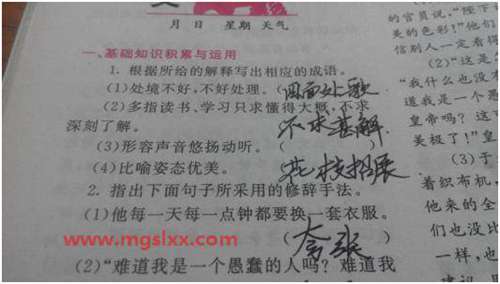 月 日 星期 天气
一、基础知识积累与运用
1. 根据所给的解释写出相应的成语。
(1)处境不好,不好处理。(四面处歌
(2)多指读书、学习只求懂得大概,不求
深刻了解。(不求甚解
(3)形容声音悠扬动听。(
(4)比喻姿态优美。花枝招展
2. 指出下面句子所采用的修辞手法。
(1)他每一天每一点钟都要换一套衣服。
(夸张
www.mgslxx.com
(2)“难道我是一个愚蠢的人吗?难道我
的官员说,“陛下
美的色彩!”他们
信别人一定看得
(2)“这是
“我什么也没
道我是一个愚
皇帝吗?这
美极了!”皇
(3)于
着织布机,
他来的全
们也没比
一样,也